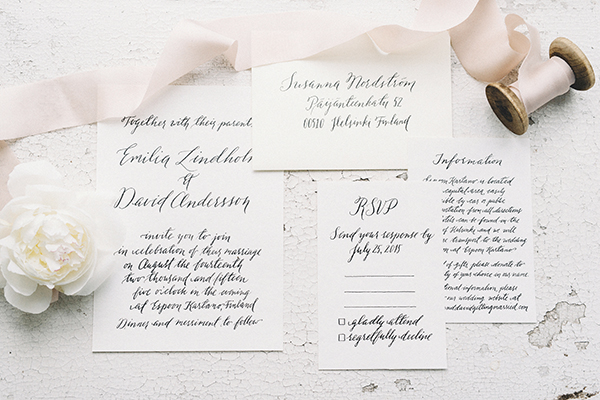 Together with their parents
Emilia Lindholm
&
David Andersson
invite you to join
in celebration of their marriage
on August the fourteenth
two thousand and fifteen
five o'clock in the evening
at Espoon Kartano, Finland
Dinner and merriment to follow
Susanna Nordström
Päijänteenkatu 52
00510 Helsinki Finland
RSVP
Send your response by
July 25, 2015
gladly attend
regretfully decline
Information
Kartano is located
capital area, easily
by car &
from all directions
can be found on the
of Helsinki and we will
transport to the wedding
at Espoo Kartano
of gifts, please donate to
of your choice in our name
information, please
our wedding website at